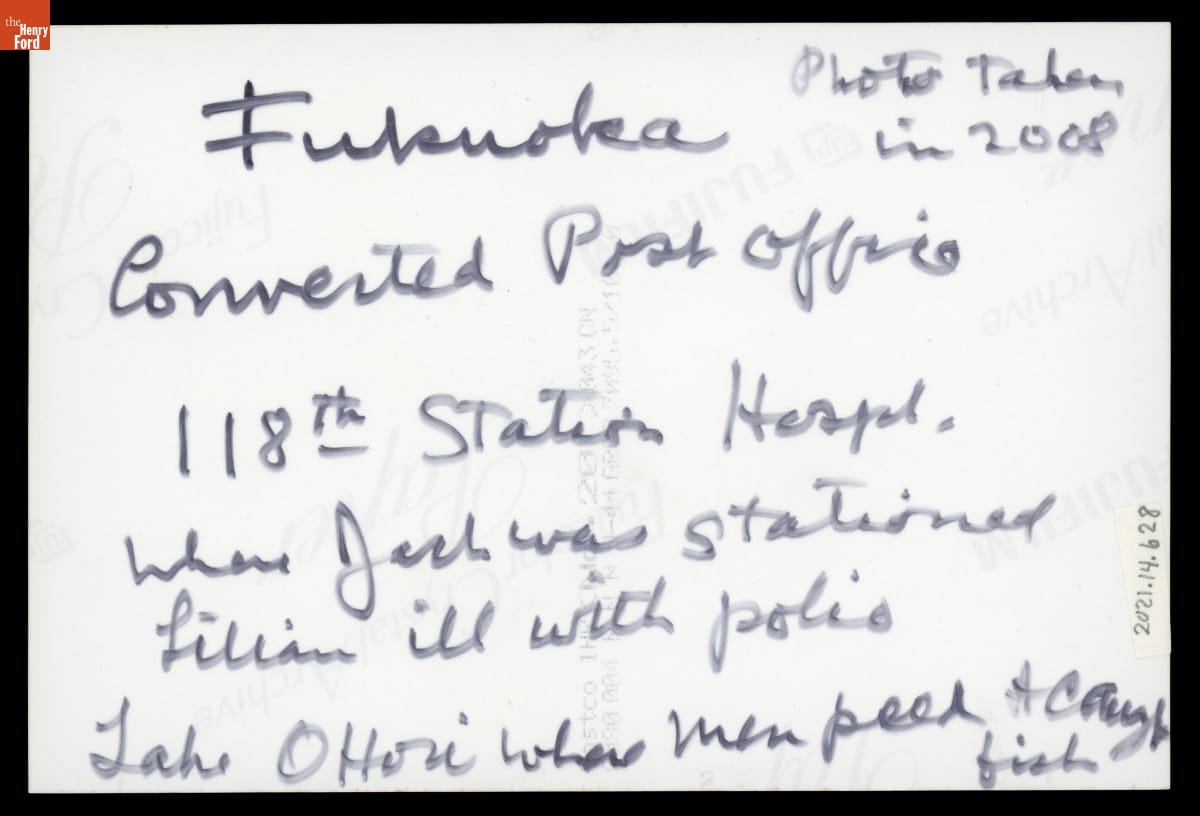 the
Henry
Ford
Photo Taken
in 2008
Fukuoka
Converted Post Office
118th Station Hospl.
where Jack was stationed
Lilian ill with polio
Lake OHori where men peed & caught
fish
2021.14.628
FUJIFILM
Fujico
Archive
FUJIFILM
Archive